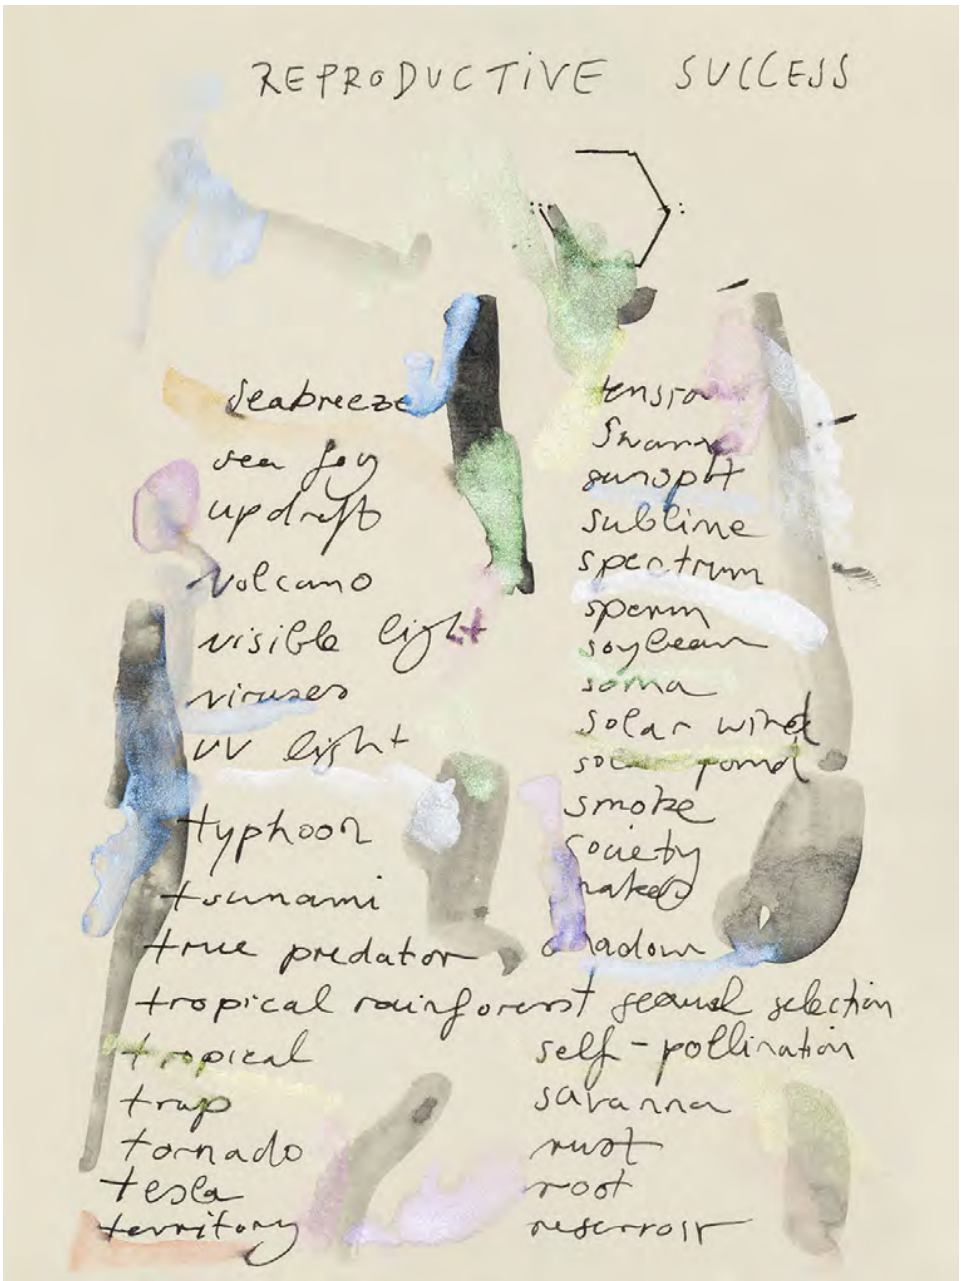 REPRODUCTIVE SUCCESS
seabreeze
sea fog
updraft
volcano
visible light
viruses
UV light
typhoon
tsunami
true predator
tropical rainforest
tropical
trap
tornado
tesla
territory
tension
swamp
sunspot
sublime
spectrum
sperm
soybean
soma
solar wind
solar pond
smoke
society
shadow
sexual selection
self-pollination
savanna
rust
root
reservoir